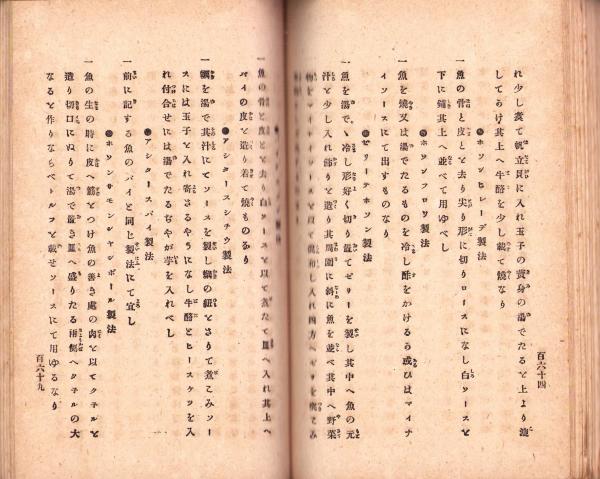 れ少し煮て帆立貝に入れ玉子の黄身の湯でたると上より漉
してらけ其上へ牛酪を少し載て燒なり
●ホツソヒレーデ製法
一魚の骨と皮とと去り尖り形に切りロースになし白ソースと
下に鋪其上へ並べて用ゆべし
●ホツソフロツ製法
一魚を燒又は湯でたるものを冷し酢をかけるる或ひはマイナ
イソースにて出すものなり
●ゼリーテホソン製法
一魚を湯で、冷し形好く切り置てゼリーを製し其中へ魚の元
汁と少し入れ飾りと造り其周圍に斜に魚を並べ其中へ野菜
物を
百六十四
一魚の骨と皮とと去り白ソースと以て煮たて皿へ入れ其上へ
パイの皮と造り着て燒ものるり
●アシタースシチウ製法
一蠣を湯で其汁にてソースを製し蠣の紐とさりて煮こみソー
スには玉子と入れ寄さるやうになし牛酪とビースケツを入
れ付合せには湯でたるぢやが芋を入れべし
●アシタースパイ製法
一前に記する魚のパイと同じ製法にて宜し
●ホツソンサモンシャンボール製法
一魚の生の時に皮へ筋とつけ魚の善き處の肉と以てクネルと
造り切口にぬりて湯で置き皿へ盛りたる兩側へクネルの大
なると作りならべトルフと載せソースにて用ゆるなり
百六十九